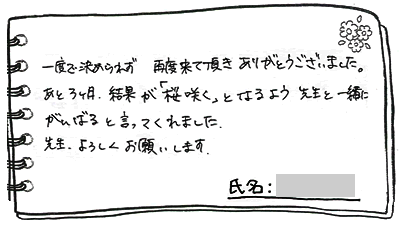 一度で決められず 再度来て頂き ありがとうございました。
あと3ヶ月、結果が「桜咲く」となるよう 先生と一緒に
がんばると言ってくれました。
先生、よろしくお願いします。
氏名: